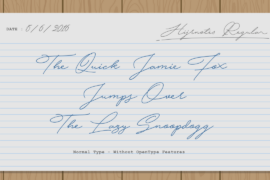 DATE - 5/5/2015
The Quick Jamie Fox
Jumps Over
The Lazy Snoopdogg
Normal Type - Without Opentype Features